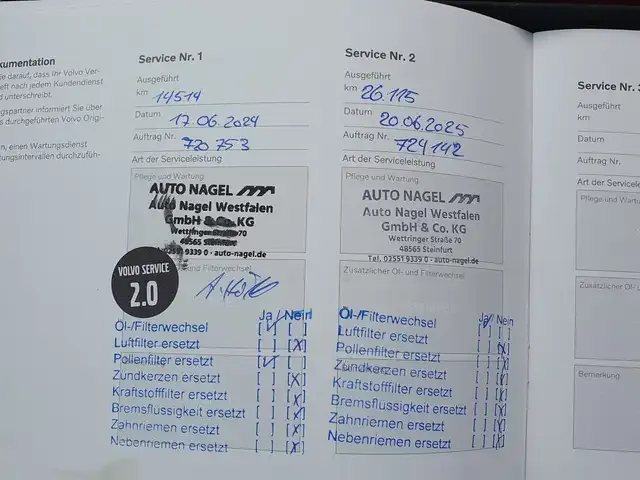 kumentation
ie darauf, dass Ihr Volvo Ver-
eft nach jedem Kundendienst
d unterschreibt.
gspartner informiert Sie über
s durchgeführten Volvo Origi-
n, einen Wartungsdienst
tungsintervallen durchzufüh-
Service Nr. 1
Ausgeführt
km 14514
Datum 17.06.2024
Auftrag Nr. 720 753
Art der Serviceleistung
Pflege und Wartung
AUTO NAGEL
Auto Nagel Westfalen
GmbH & Co. KG
Wettringer Straße 70
48565 Steinfurt
02551 9339 0 · auto-nagel.de
VOLVO SERVICE
2.0
und Filterwechsel
Ja / Nein
Öl-/Filterwechsel [✓] [ ]
Luftfilter ersetzt [ ] [X]
Pollenfilter ersetzt [✓] [ ]
Zündkerzen ersetzt [ ] [X]
Kraftstofffilter ersetzt [ ] [X]
Bremsflüssigkeit ersetzt [ ] [X]
Zahnriemen ersetzt [ ] [X]
Nebenriemen ersetzt [ ] [X]
Service Nr. 2
Ausgeführt
km 26.115
Datum 20.06.2025
Auftrag Nr. 724142
Art der Serviceleistung
Pflege und Wartung
AUTO NAGEL
Auto Nagel Westfalen
GmbH & Co. KG
Wettringer Straße 70
48565 Steinfurt
Tel. 02551 9339 0 · auto-nagel.de
Zusätzlicher Öl- und Filterwechsel
Ja / Nein
Öl-/Filterwechsel [✓] [ ]
Luftfilter ersetzt [ ] [X]
Pollenfilter ersetzt [ ] [X]
Zündkerzen ersetzt [ ] [X]
Kraftstofffilter ersetzt [ ] [X]
Bremsflüssigkeit ersetzt [ ] [X]
Zahnriemen ersetzt [ ] [X]
Nebenriemen ersetzt [ ] [X]
Service Nr. 3
Ausgeführt
km
Datum
Auftrag Nr.
Art der Service
Pflege und Wartu
Zusätzlicher Öl-
Bemerkung